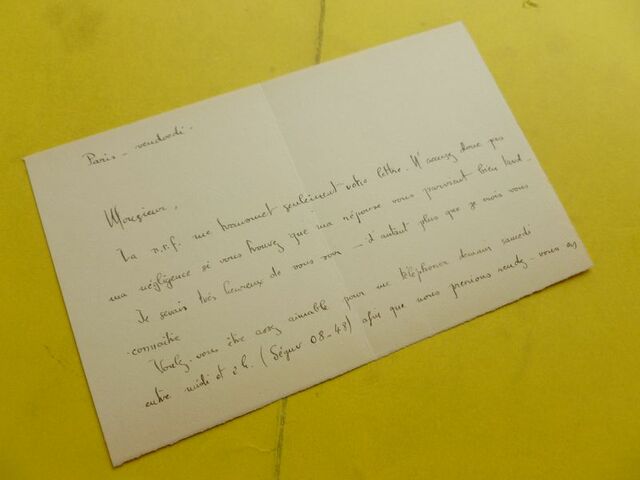 Paris - vendredi.
Monsieur,
La n.r.f. me transmet seulement votre lettre. N'accusez donc pas
ma négligence si vous trouvez que ma réponse vous parvient bien tard.
Je serais très heureux de vous voir - d'autant plus que je crois vous
connaître
Voulez-vous être assez aimable pour me téléphoner demain samedi
entre midi et 2 h. (Ségur 08-48) afin que nous prenions rendez-vous